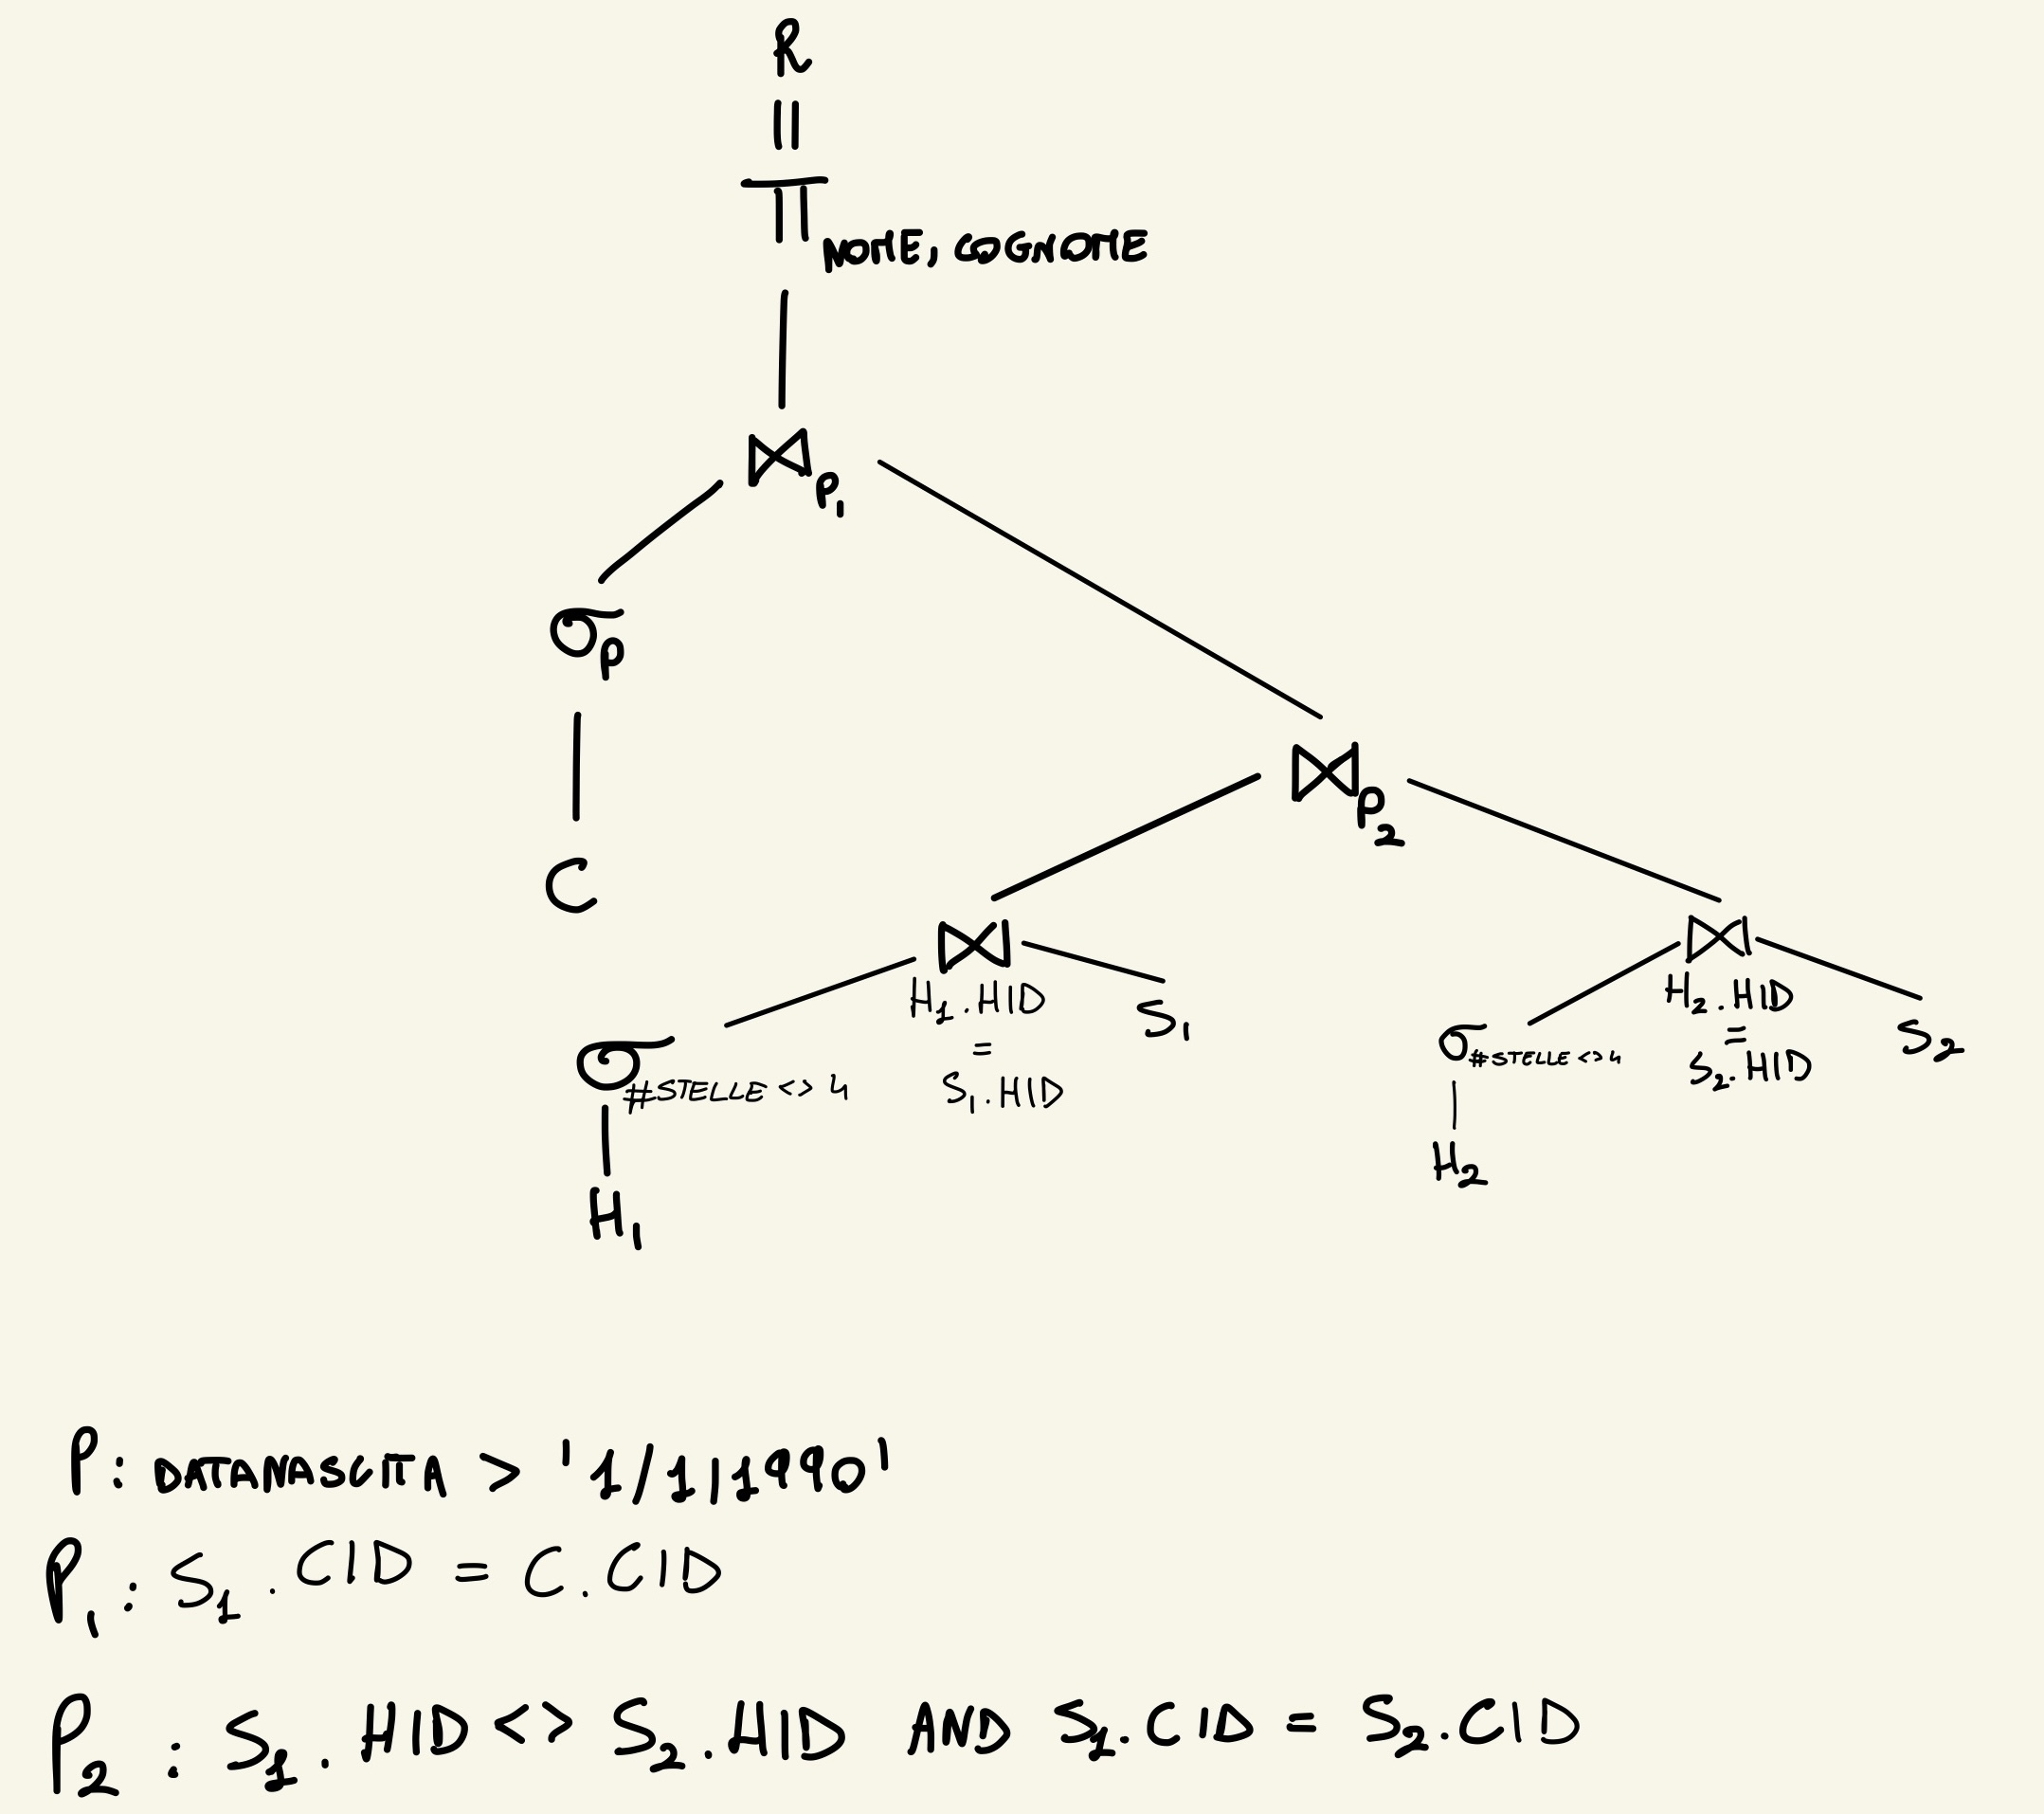 R
=
π NOME, COGNOME
⋈ P1
σ P
C
⋈ P2
⋈ H1.HID = S1.HID
S1
⋈ H2.HID = S2.HID
S2
σ #STELLE <> 4
H1
σ #STELLE <> 4
H2
P: DATANASCITA > '1/1/1990'
P1: S1.CID = C.CID
P2: S1.HID <> S2.HID AND S1.CID = S2.CID